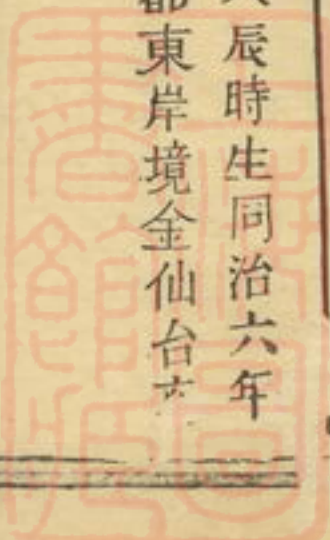 辰時生同治六年
都東岸境金仙台